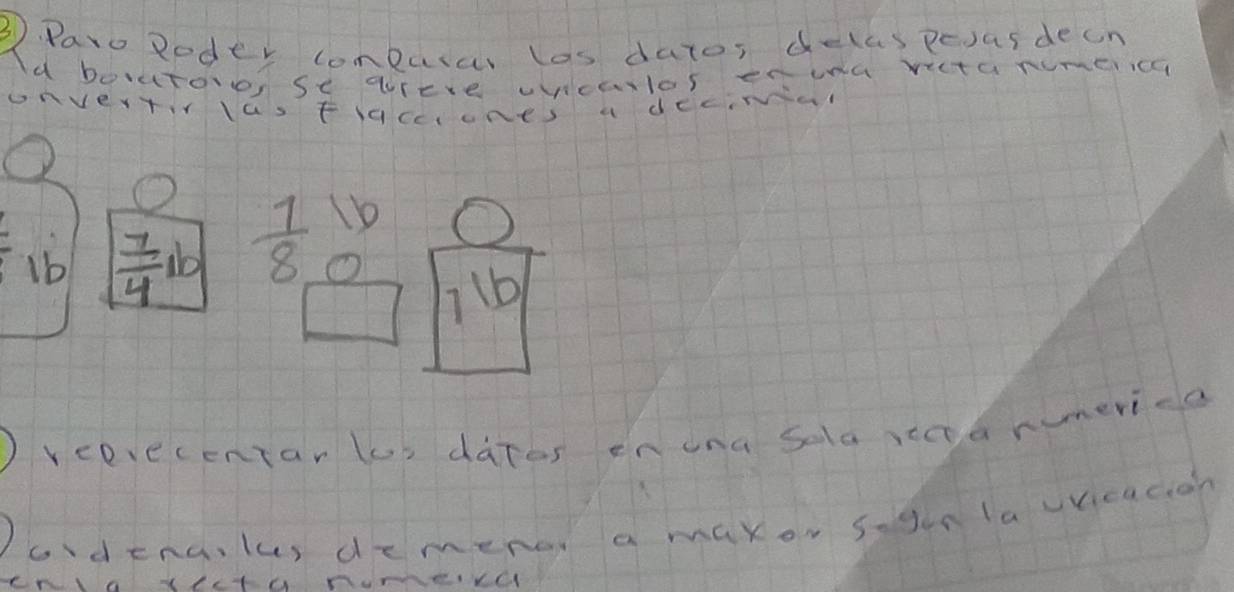 3) Paro Poder comparar los datos de las pesas de un
laboratorio, se quiere uvicarlos en una recta numerica
onvertir las fracciones a decimal
lb
7/4 lb
1/8 lb
1 lb
) reprecentar los dátos en una sola recta numerica
) ordenarlas de menor a mayor según la uvicación
en la recta numerica